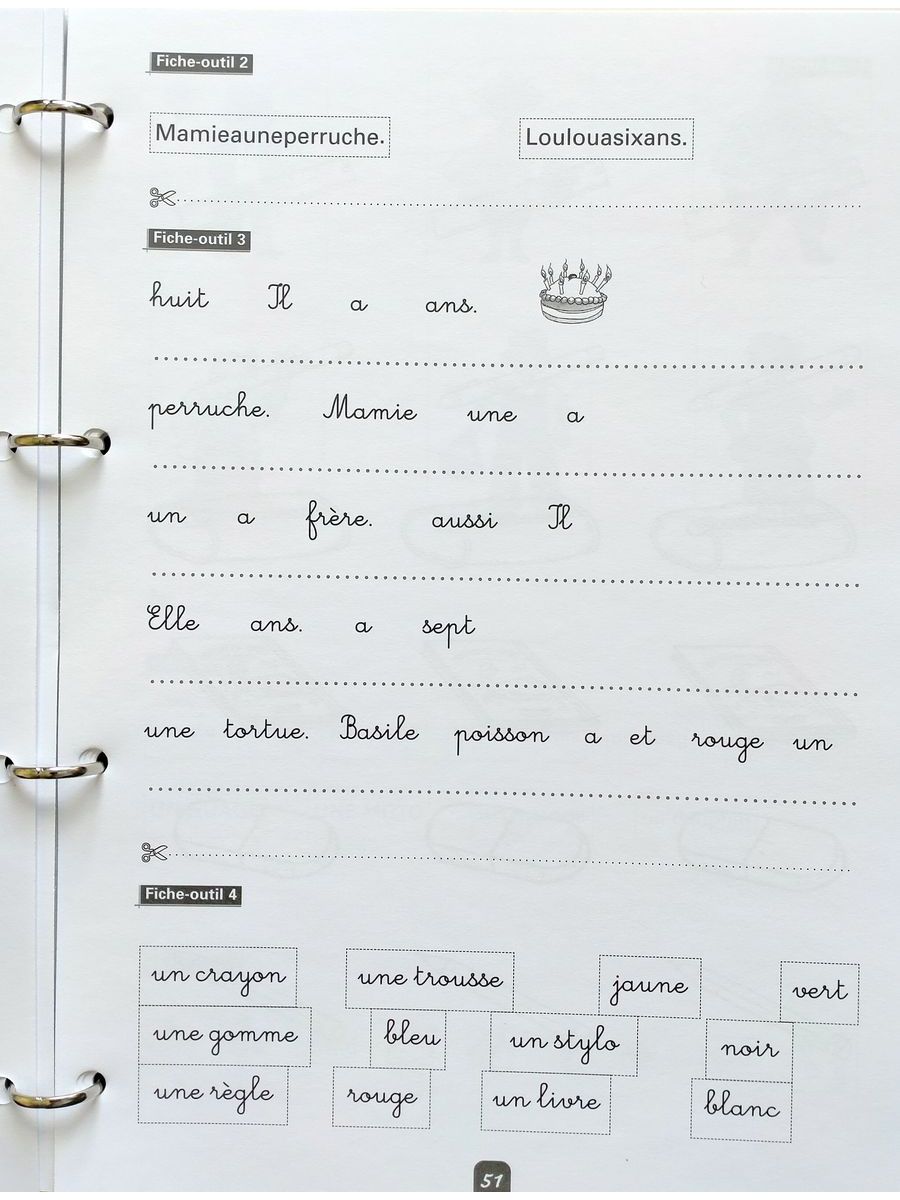 Fiche-outil 2
Mamieauneperruche. Loulouasixans.
Fiche-outil 3
huit Il a ans.
perruche. Mamie une a
un a frère. aussi Il
Elle ans. a sept
une tortue. Basile poisson a et rouge un
Fiche-outil 4
un crayon une trousse jaune vert
une gomme bleu un stylo noir
une règle rouge un livre blanc
51